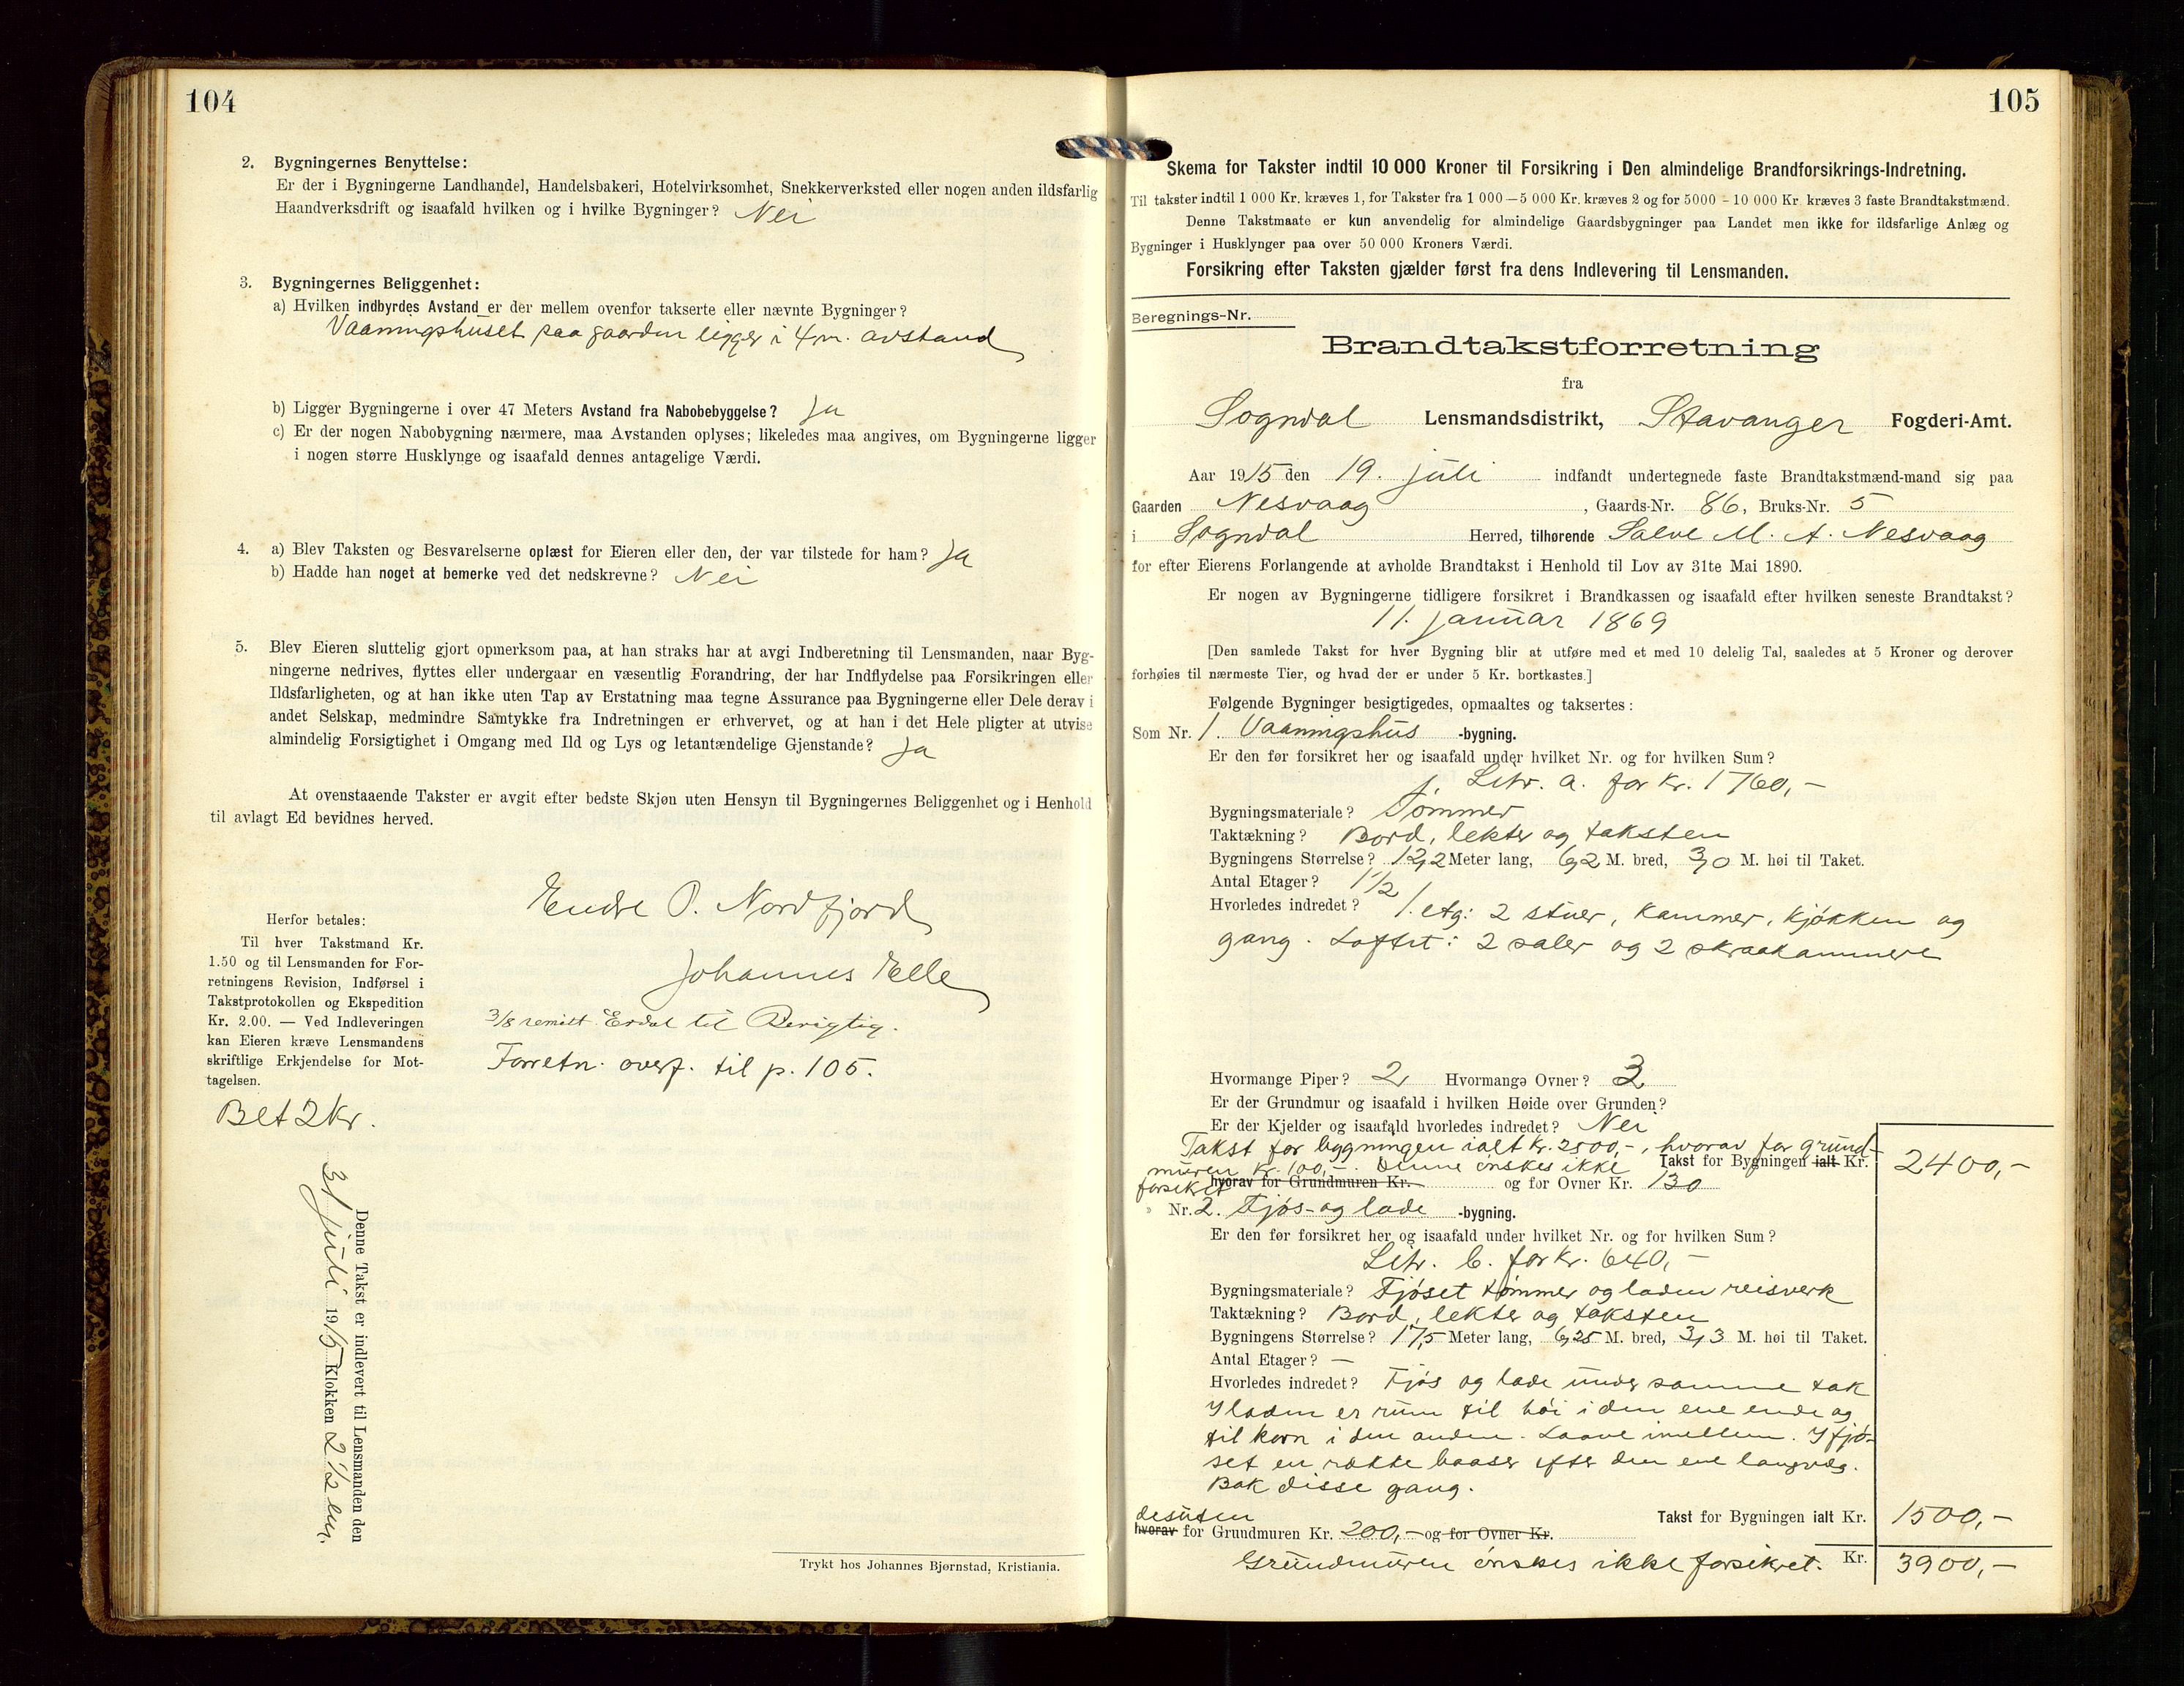 104
2. Bygningernes Benyttelse:
Er der i Bygningerne Landhandel, Handelsbakeri, Hotelvirksomhet, Snekkerverksted eller nogen anden ildsfarlig
Haandverksdrift og isaafald hvilken og i hvilke Bygninger? Nei
3. Bygningernes Beliggenhet:
a) Hvilken indbyrdes Avstand er der mellem ovenfor takserte eller nævnte Bygninger?
Vaaningshuset paa gaarden ligger i 4 m. avstand
b) Ligger Bygningerne i over 47 Meters Avstand fra Nabobebyggelse? Ja
c) Er der nogen Nabobygning nærmere, maa Avstanden oplyses; likeledes maa angives, om Bygningerne ligger
i nogen større Husklynge og isaafald dennes antagelige Værdi.
4. a) Blev Taksten og Besvarelserne oplæst for Eieren eller den, der var tilstede for ham? Ja
b) Hadde han noget at bemerke ved det nedskrevne? Nei
5. Blev Eieren sluttelig gjort opmerksom paa, at han straks har at avgi Indberetning til Lensmanden, naar Byg-
ningerne nedrives, flyttes eller undergaar en væsentlig Forandring, der har Indflydelse paa Forsikringen eller
Ildsfarligheten, og at han ikke uten Tap av Erstatning maa tegne Assurance paa Bygningerne eller Dele derav i
andet Selskap, medmindre Samtykke fra Indretningen er erhvervet, og at han i det Hele pligter at utvise
almindelig Forsigtighet i Omgang med Ild og Lys og letantændelige Gjenstande? Ja
At ovenstaaende Takster er avgit efter bedste Skjøn uten Hensyn til Bygningernes Beliggenhet og i Henhold
til avlagt Ed bevidnes herved.
Endre P. Nordfjord
Johannes Elle
3/8 remitt. til
Forretn. overf. til p. 105.
Herfor betales:
Til hver Takstmand Kr.
1.50 og til Lensmanden for For-
retningens Revision, Indførsel i
Takstprotokollen og Ekspedition
Kr. 2.00. — Ved Indleveringen
kan Eieren kræve Lensmandens
skriftlige Erkjendelse for Mot-
tagelsen.
Bet 2 Kr.
Denne Takst er indlevert til Lensmanden den
31 juli 1915 Klokken 2 1/2 em.
Trykt hos Johannes Bjørnstad, Kristiania.
105
Skema for Takster indtil 10 000 Kroner til Forsikring i Den almindelige Brandforsikrings-Indretning.
Til takster indtil 1 000 Kr. kræves 1, for Takster fra 1 000 — 5 000 Kr. kræves 2 og for 5000 - 10 000 Kr. kræves 3 faste Brandtakstmænd.
Denne Takstmaate er kun anvendelig for almindelige Gaardsbygninger paa Landet men ikke for ildsfarlige Anlæg og
Bygninger i Husklynger paa over 50 000 Kroners Værdi.
Forsikring efter Taksten gjælder først fra dens Indlevering til Lensmanden.
Beregnings-Nr.
Brandtakstforretning
fra
Sogndal Lensmandsdistrikt, Stavanger Fogderi-Amt.
Aar 1915 den 19. juli indfandt undertegnede faste Brandtakstmænd-mand sig paa
Gaarden Nesvaag, Gaards-Nr. 86, Bruks-Nr. 5
i Sogndal Herred, tilhørende Salve M. A. Nesvaag
for efter Eierens Forlangende at avholde Brandtakst i Henhold til Lov av 31te Mai 1890.
Er nogen av Bygningerne tidligere forsikret i Brandkassen og isaafald efter hvilken seneste Brandtakst?
11. januar 1869
[Den samlede Takst for hver Bygning blir at utføre med et med 10 delelig Tal, saaledes at 5 Kroner og derover
forhøies til nærmeste Tier, og hvad der er under 5 Kr. bortkastes.]
Følgende Bygninger besigtigedes, opmaaltes og taksertes:
Som Nr. 1. Vaaningshus -bygning.
Er den før forsikret her og isaafald under hvilket Nr. og for hvilken Sum?
Litr. a. for Kr. 1760,-
Bygningsmateriale? Tømmer
Taktækning? Bord, lekter og taksten
Bygningens Størrelse? 12,2 Meter lang, 6,2 M. bred, 3,0 M. høi til Taket.
Antal Etager? 1 1/2
Hvorledes indredet? 1. etg: 2 stuer, kammer, kjøkken og
gang. Loftet: 2 saler og 2 skraakammere
Hvormange Piper? 2 Hvormange Ovner? 3
Er der Grundmur og isaafald i hvilken Høide over Grunden?
Er der Kjelder og isaafald hvorledes indredet? Nei
Takst for bygningen ialt kr. 2500,-, hvorav for grund-
muren kr. 100,-. Denne ønskes ikke Takst for Bygningen ialt Kr. 2400,-
forsikret hvorav for Grundmuren Kr. og for Ovner Kr. 130
" Nr. 2. Fjøs- og lade -bygning.
Er den før forsikret her og isaafald under hvilket Nr. og for hvilken Sum?
Litr. b. for Kr. 640,-
Bygningsmateriale? Fjøset tømmer og laden reisverk
Taktækning? Bord, lekter og taksten
Bygningens Størrelse? 17,5 Meter lang, 6,25 M. bred, 3,3 M. høi til Taket.
Antal Etager? —
Hvorledes indredet? Fjøs og lade under samme tak
I laden er rum til høi i den ene ende og
til korn i den anden. Laave imellem. I fjø-
set en række baaser efter den ene langvæg.
Bak disse gang.
desuten Takst for Bygningen ialt Kr. 1500,-
hvorav for Grundmuren Kr. 200,- og for Ovner Kr.
Grundmuren ønskes ikke forsikret. Kr. 3900,-